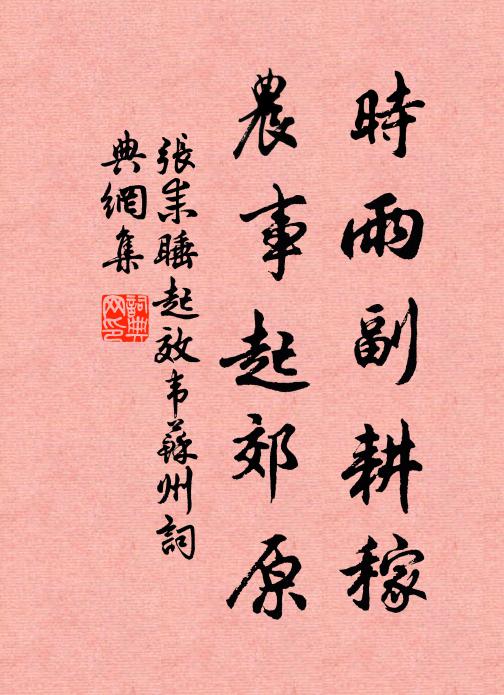 時雨副耕稼
農事起郊原
張耒睡起效韦蘇州詞
典網集
詞典网印